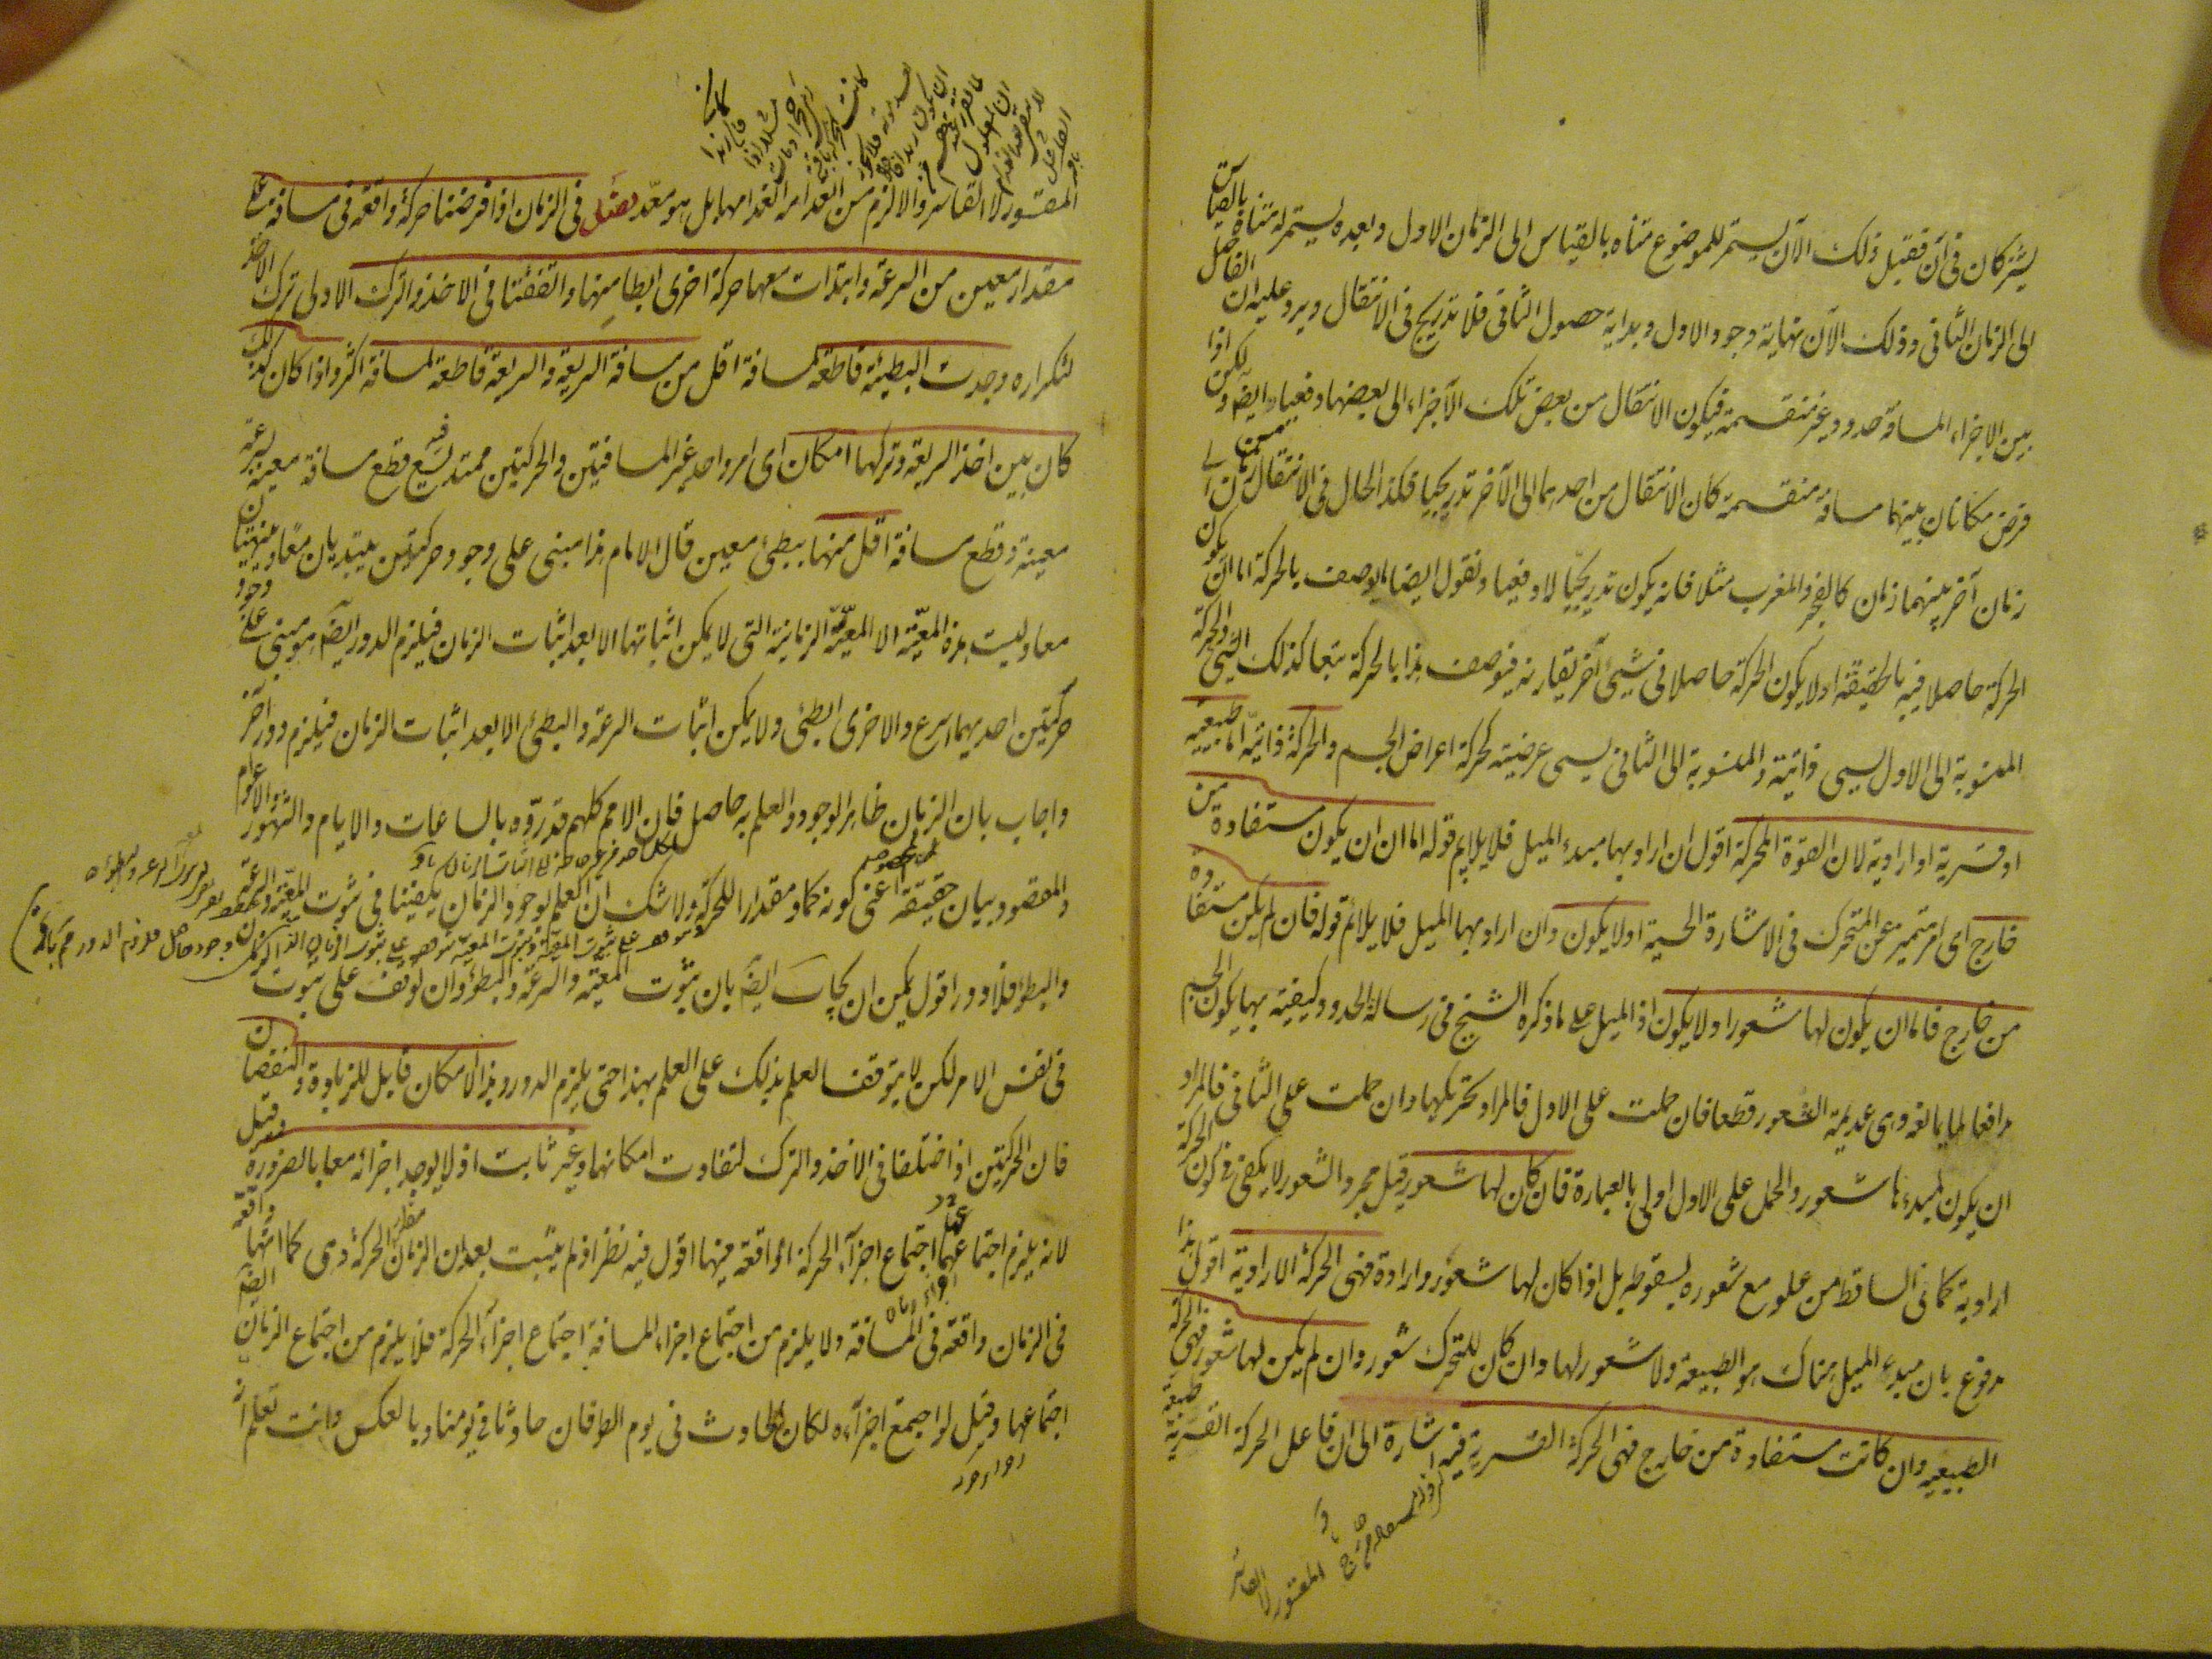 يشتركان في آن فقبل ذلك الآن يستمر للموضوع متناه بالقياس الى الزمان الاول وبعده يستمر له متناه بالقياس
الى الزمان الثاني وذلك الآن نهاية وجود الاول وبداية حصول الثاني فلا تدريج في الانتقال ويرد عليه ان الفاصل
بين الاجزاء المسافة حدود غير منقسمة فيكون الانتقال من بعض تلك الآجزاء الى بعضها دفعيا ايضا ولكن اذا
فرض مكانان بينهما مسافة منقسمة كان الانتقال من احدهما الى الآخر تدريجيا فكذا الحال في الانتقال من زمان الى
زمان آخر بينهما زمان كالفجر والمغرب مثلا فانه يكون تدريجيا لا دفعيا ونقول ايضا ما يوصف بالحركة اما ان يكون
الحركة حاصلا فيه بالحقيقة او لا يكون الحركة حاصلا في شيئ آخر يقارنه فيوصف هذا بالحركة تبعا لذلك الشيئ والحركة
المنسوبة الى الاول يسمى ذاتية والمنسوبة الى الثاني يسمى عرضية كحركة اعراض الجسم والحركة ذاتية اما طبيعية
او قسرية او ارادية لان القوة المحركة اقول ان اراد بها مبدء الميل فلا يلايم قوله اما ان ان يكون مستفادة من
خارج اى امر متميز عن المتحرك في الاشارة الحسية او لا يكون وان اراد بها الميل فلا يلائم قوله فان لم يكن مستفادة
من خارج فاما ان يكون لها شعور او لا يكون اذ الميل على ما ذكره الشيخ في رسالة الحدود كيفية بها يكون الجسم
مدافعا لما يمانعه وهى عديمة الشعور قطعا فان حملت على الاول فالمراد تحريكها وان حملت على الثاني فالمراد
ان يكون لمبدءها شعور والحمل على الاول اولى بالعبارة فان كان لها شعور قيل مجرد الشعور لا يكفى في كون الحركة
ارادية كما في الساقط من علو مع شعوره بسقوطه بل اذا كان لها شعور وارادة فهى الحركة الارادية اقول هذا
مدفوع بان مبدء الميل هناك هو الطبيعة ولا شعور لها وان كان للمتحرك شعور وان لم يكن لها شعور فهى الحركة
الطبيعية وان كانت مستفادة من خارج فهى الحركة القسرية فيه اشارة الى ان فاعل الحركة القسرية طبيعة
المقسور لا القاسر
المقسور لا القاسر والا لزم من انعدامه انعدامها بل هو معدّ فصل في الزمان اذا فرضنا حركة واقعة في مسافة على
مقدار معين من السرعة وابتدأت معها حركة اخرى ابطأ منها واتفقتا في الاخذ والترك الاولى ترك الاخذ
لتكراره وجدت البطيئة قاطعة لمسافة اقل من مسافة السريعة والسريعة قاطعة لمسافة اكثر واذا كان كذلك
كان بين اخذ السريعة وتركها امكان اى امر واحد غير المسافتين والحركتين ممتد يسع فيه قطع مسافة معينة بسرعة
معينة وقطع مسافة اقل منها ببطئ معين قال الامام هذا مبنى على وجود حركتين يبتديان معا وينتهيان
معا وليست هذه المعية الا المعية الزمانية التى لا يمكن اثباتها الا بعد اثبات الزمان فيلزم الدور ايضا هو مبنى على وجود
حركتين احديهما اسرع والاخرى ابطئ ولا يمكن اثبات السرعة والبطئ الا بعد اثبات الزمان فيلزم دور آخر
واجاب بان الزمان ظاهر الوجود والعلم به حاصل فان الامم كلهم قدروه بالساعات والايام والشهور والاعوام
والمقصود بيان حقيقته اعنى كونه كما ومقدارا للحركة ولا شك ان العلم بوجود الزمان يكفينا في ثبوت المعية والسرعة
والبطؤ فلا دور اقول يمكن ان يجاب ايضا بان ثبوت المعية والسرعة والبطؤ وان توقف على ثبوت
في نفس الامر لكن لا يتوقف العلم بذلك على العلم بهذا حتى يلزم الدور وهذا الامكان قابل للزيادة والنقصان
فان الحركتين اذا اختلفا في الاخذ والترك لتفاوت امكانهما وغير ثابت اذ لا يوجد اجزائه معا بالضرورة وقيل
لانه يلزم اجتماعها اجتماع اجزآء الحركة الواقعة فيها اقول فيه نظر اذ لم يثبت بعد ان الزمان مقدار الحركة وهى كما انها واقعة
في الزمان واقعة في المسافة ولا يلزم من اجتماع اجزاء المسافة اجتماع اجزآء الحركة فلا يلزم من اجتماع الزمان ايضا
اجتماعها وقيل لو اجتمع اجزآءه لكان الحادث في يوم الطوفان حادثا في يومنا وبالعكس وانت تعلم انه